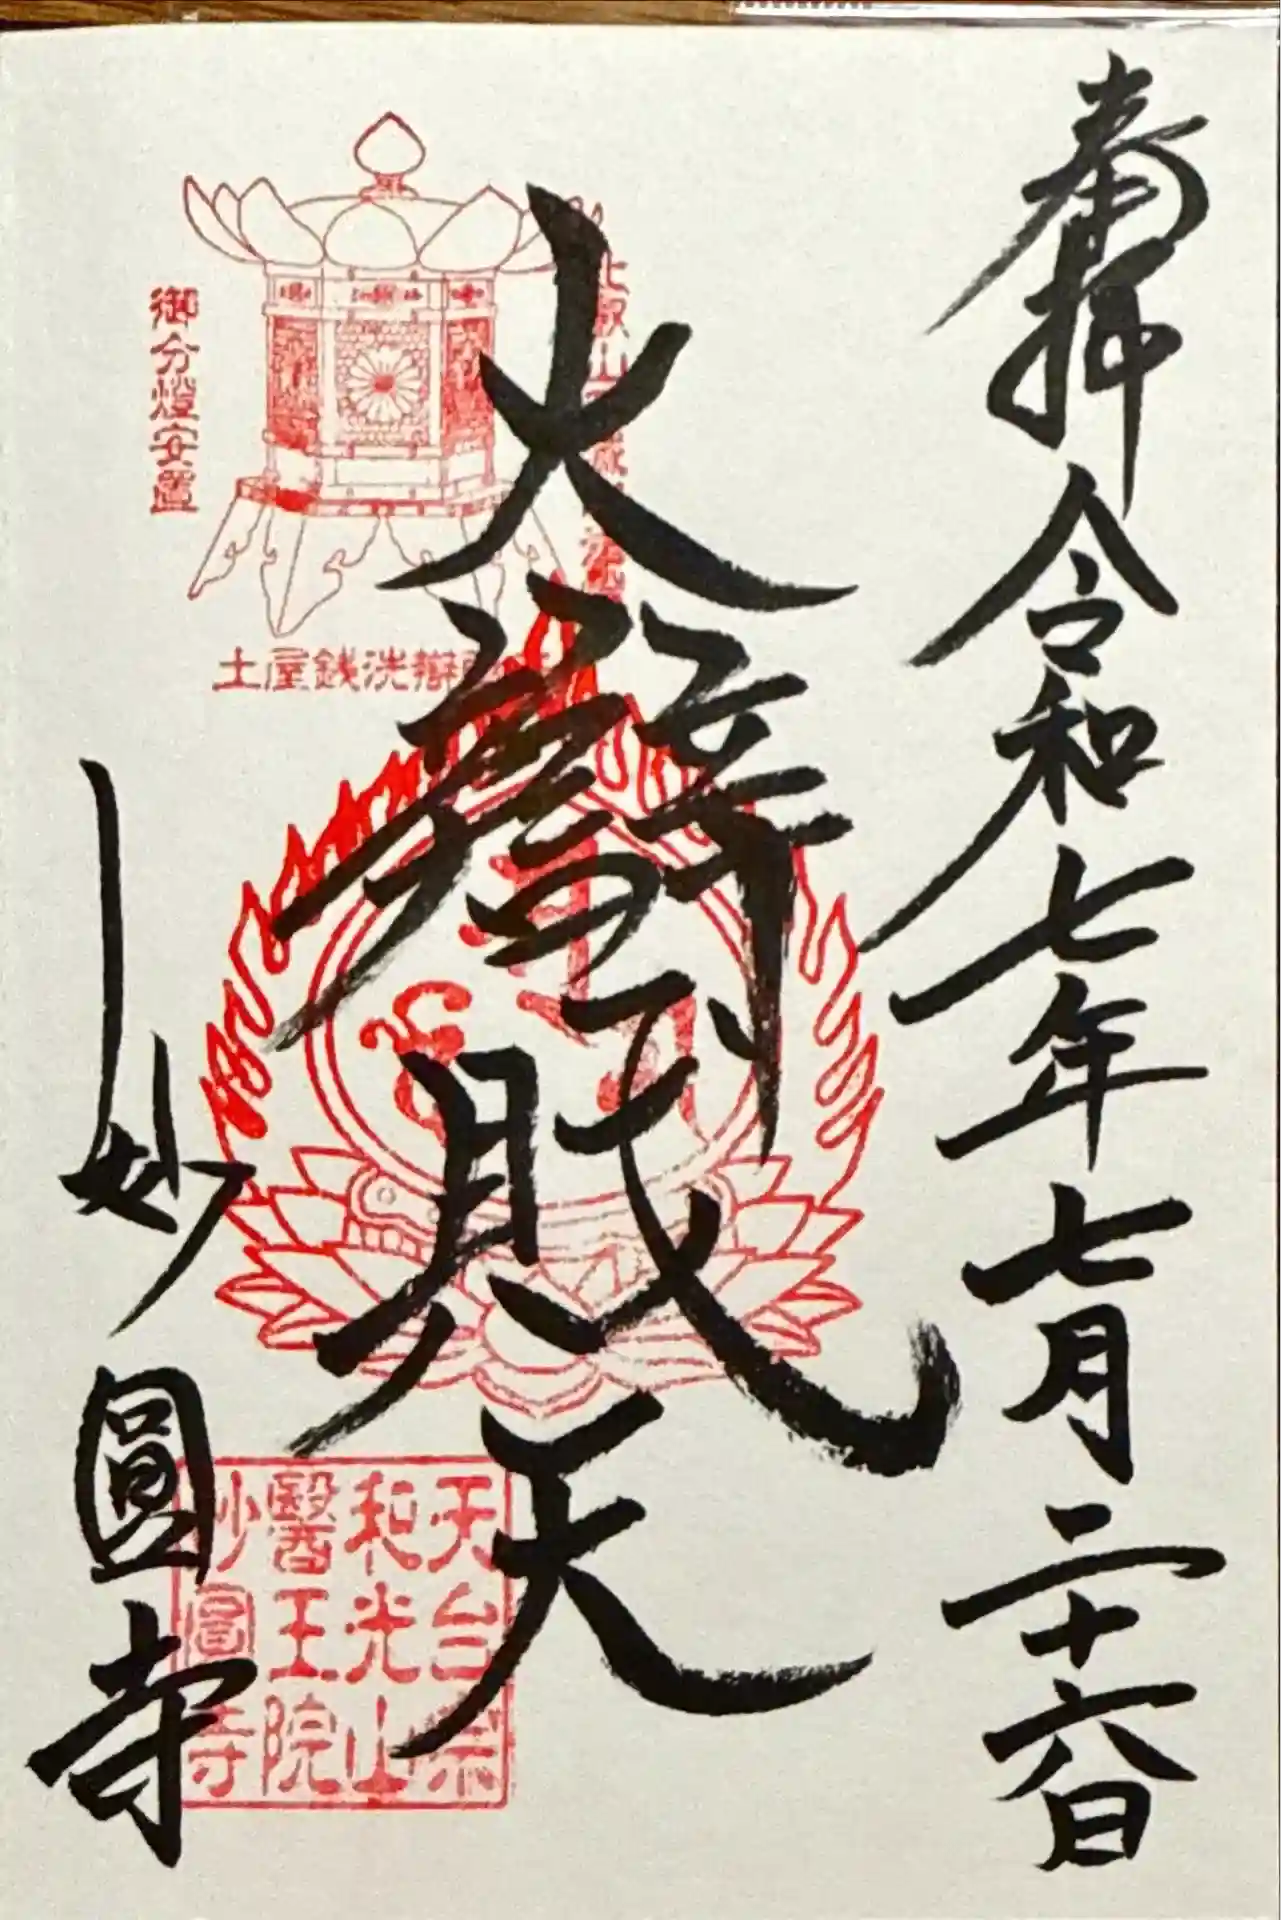 奉拝 令和七年七月二十六日
大辯財天
妙圓寺
御分燈安置
土屋銭洗辯
天台宗
和光山
醫王院
妙圓寺